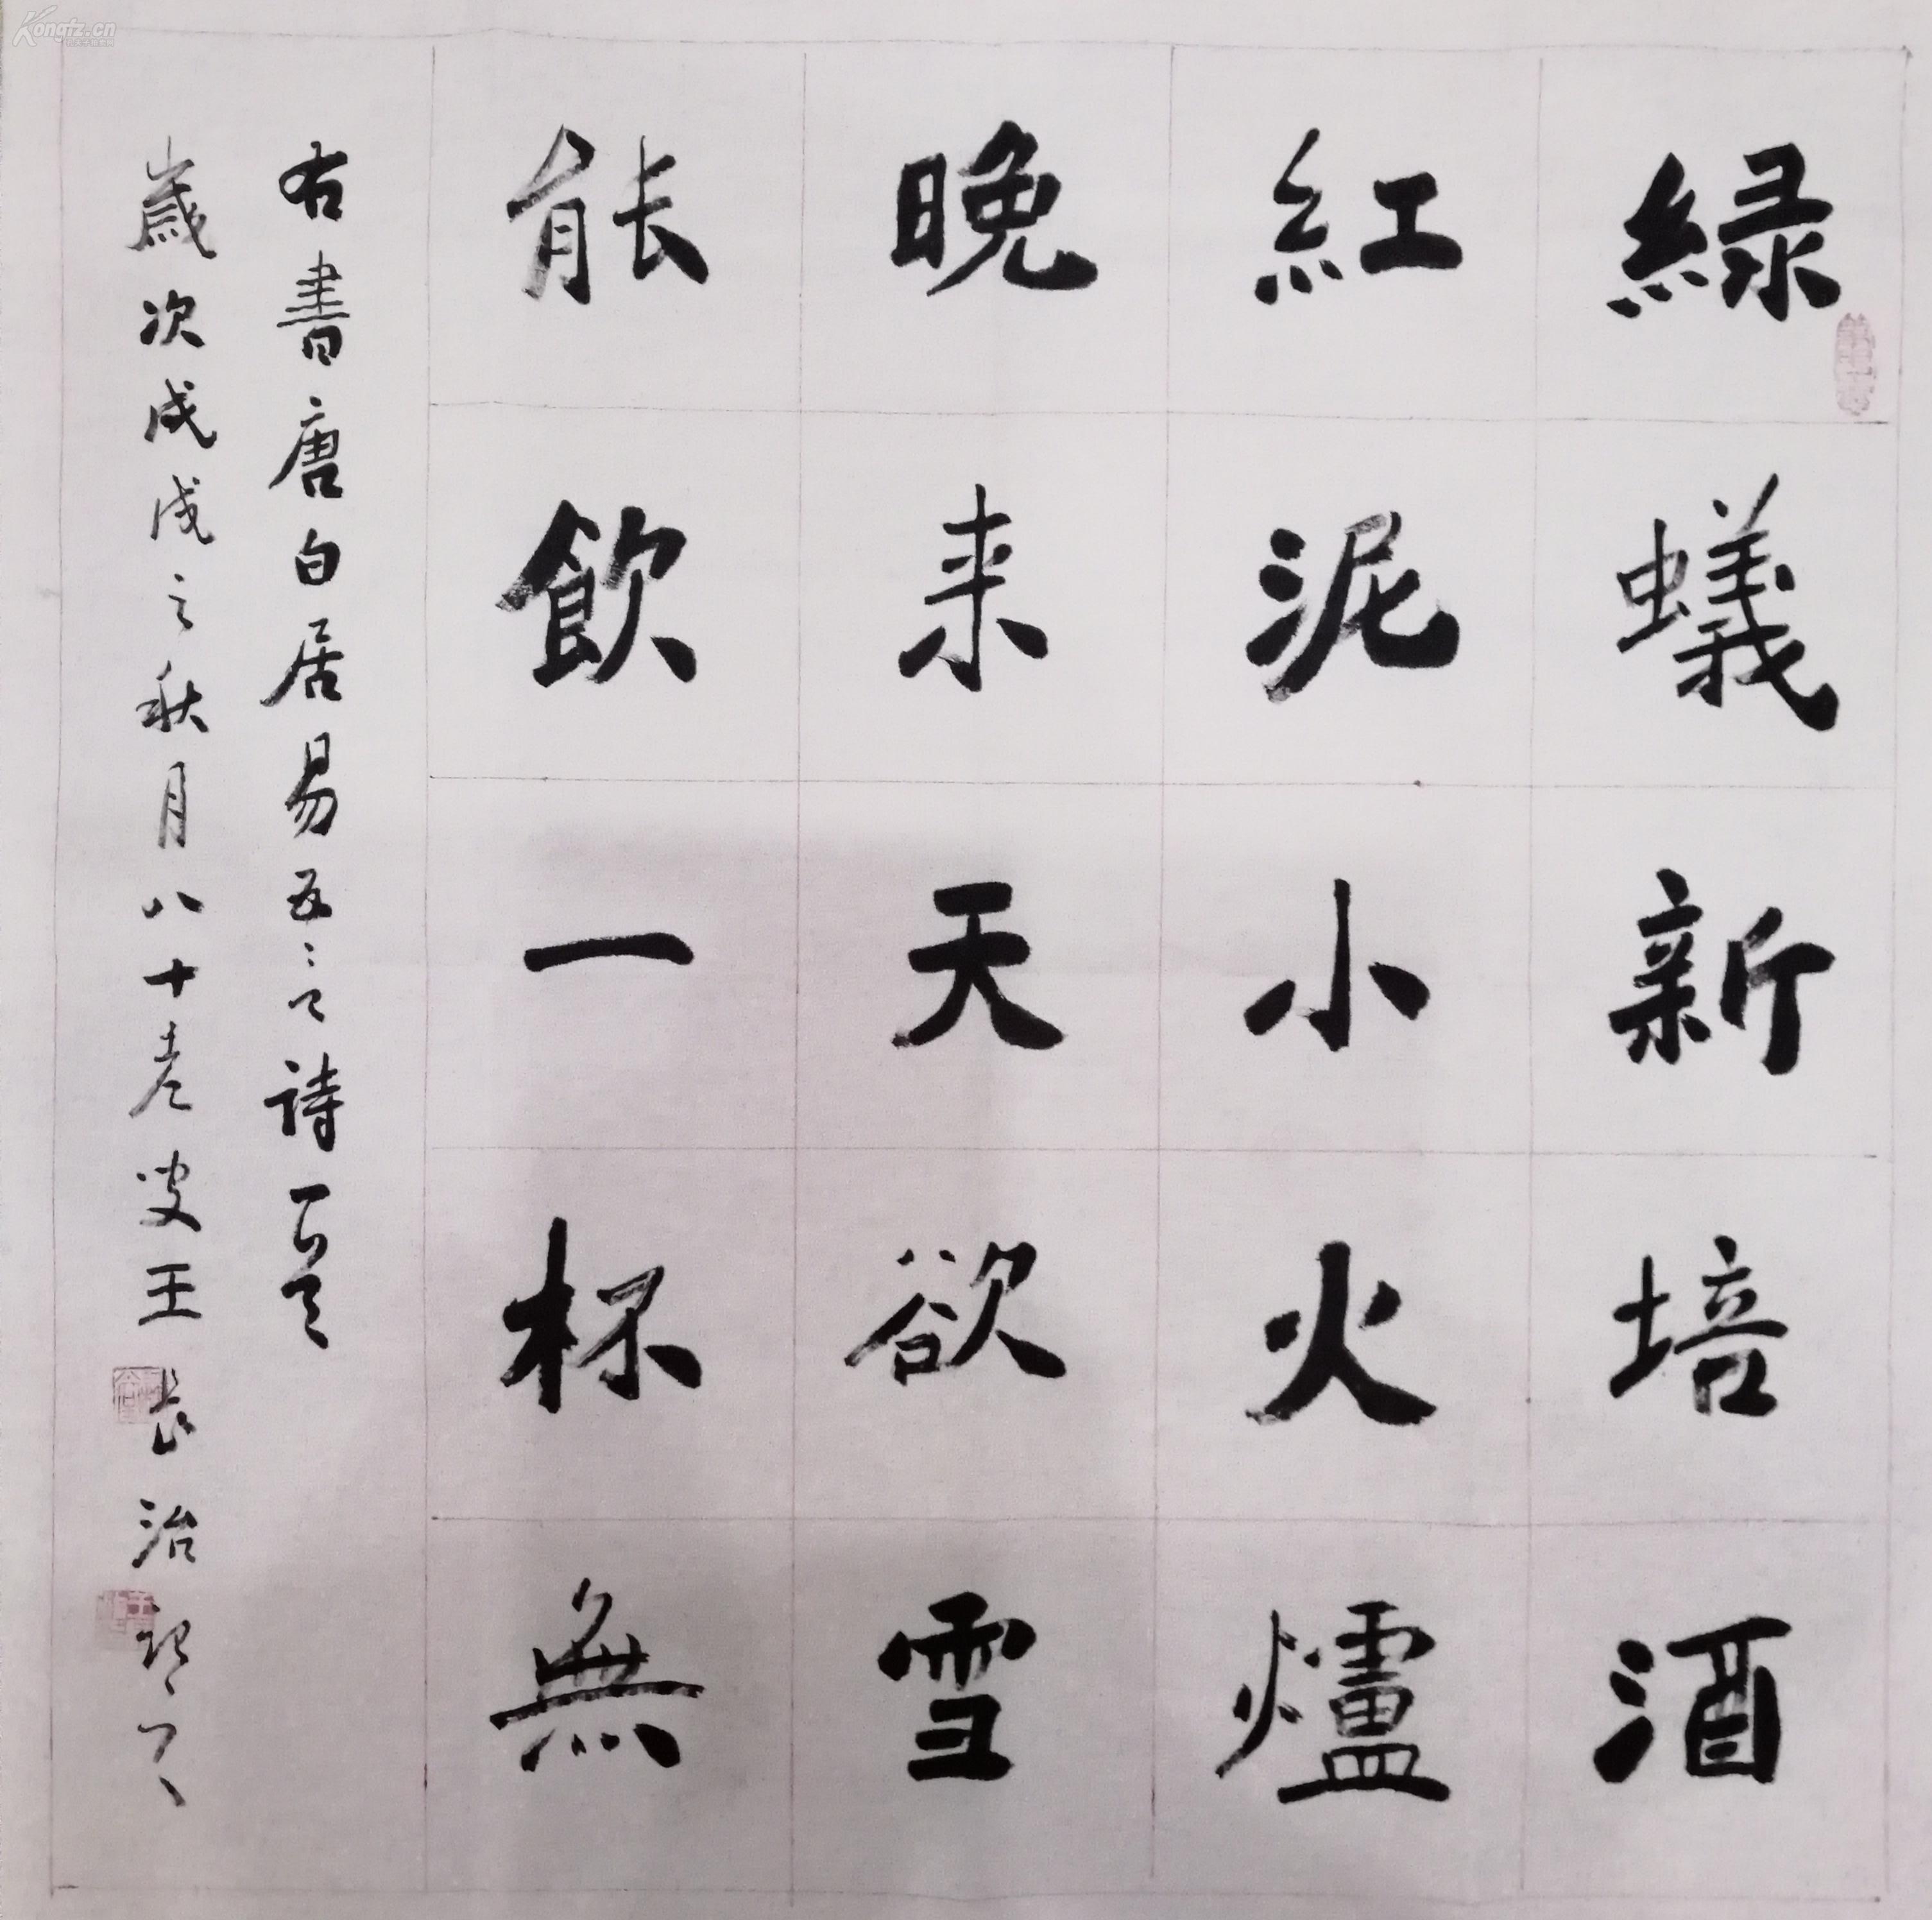 綠蟻新培酒
紅泥小火爐
晚来天欲雪
能飲一杯無
右書唐白居易五言詩一首
歲次戊戌之秋月八十老叟王長治敬書
Kongfz.cn